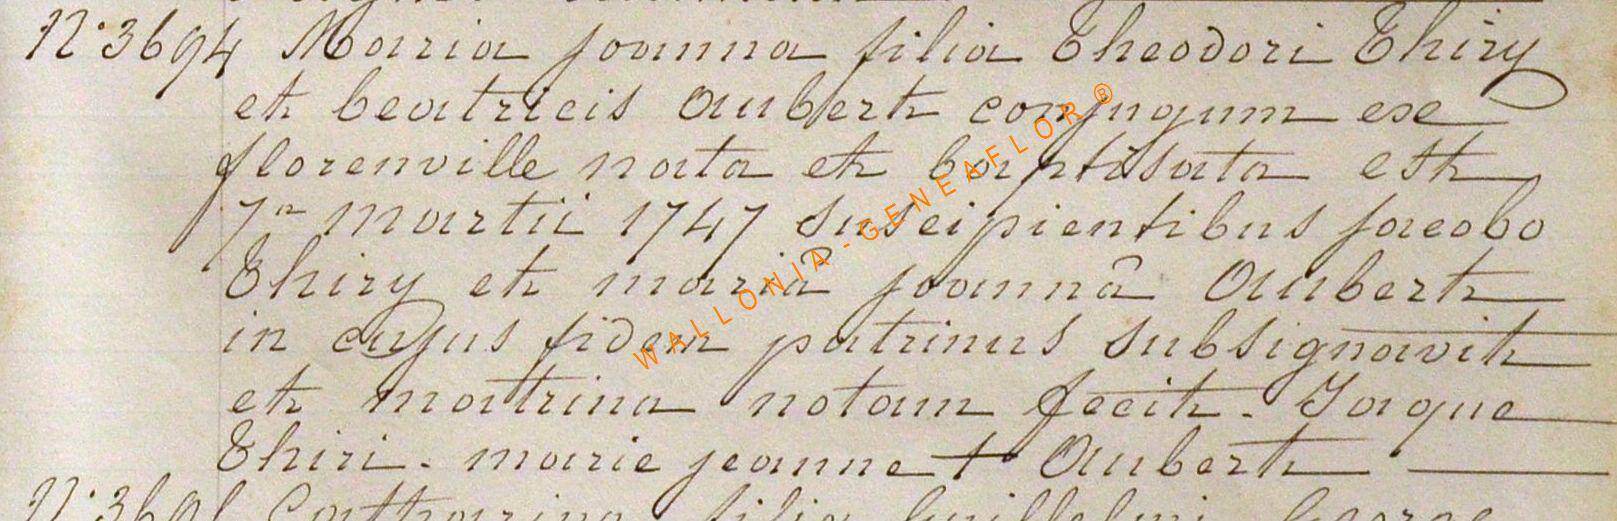 N° 3694 Maria joanna filia Theodori Thiry
et beatricis Aubert conjugum ex
florenville nata et baptisata est
7a martii 1747 suscipientibus jacobo
Thiry et mariâ joannâ Aubert
in cujus fidem patrinus subsignavit
et matrina notam fecit. Jaque
Thiri. marie jeanne + Aubert
WALLONIA-GENEAFLOR®